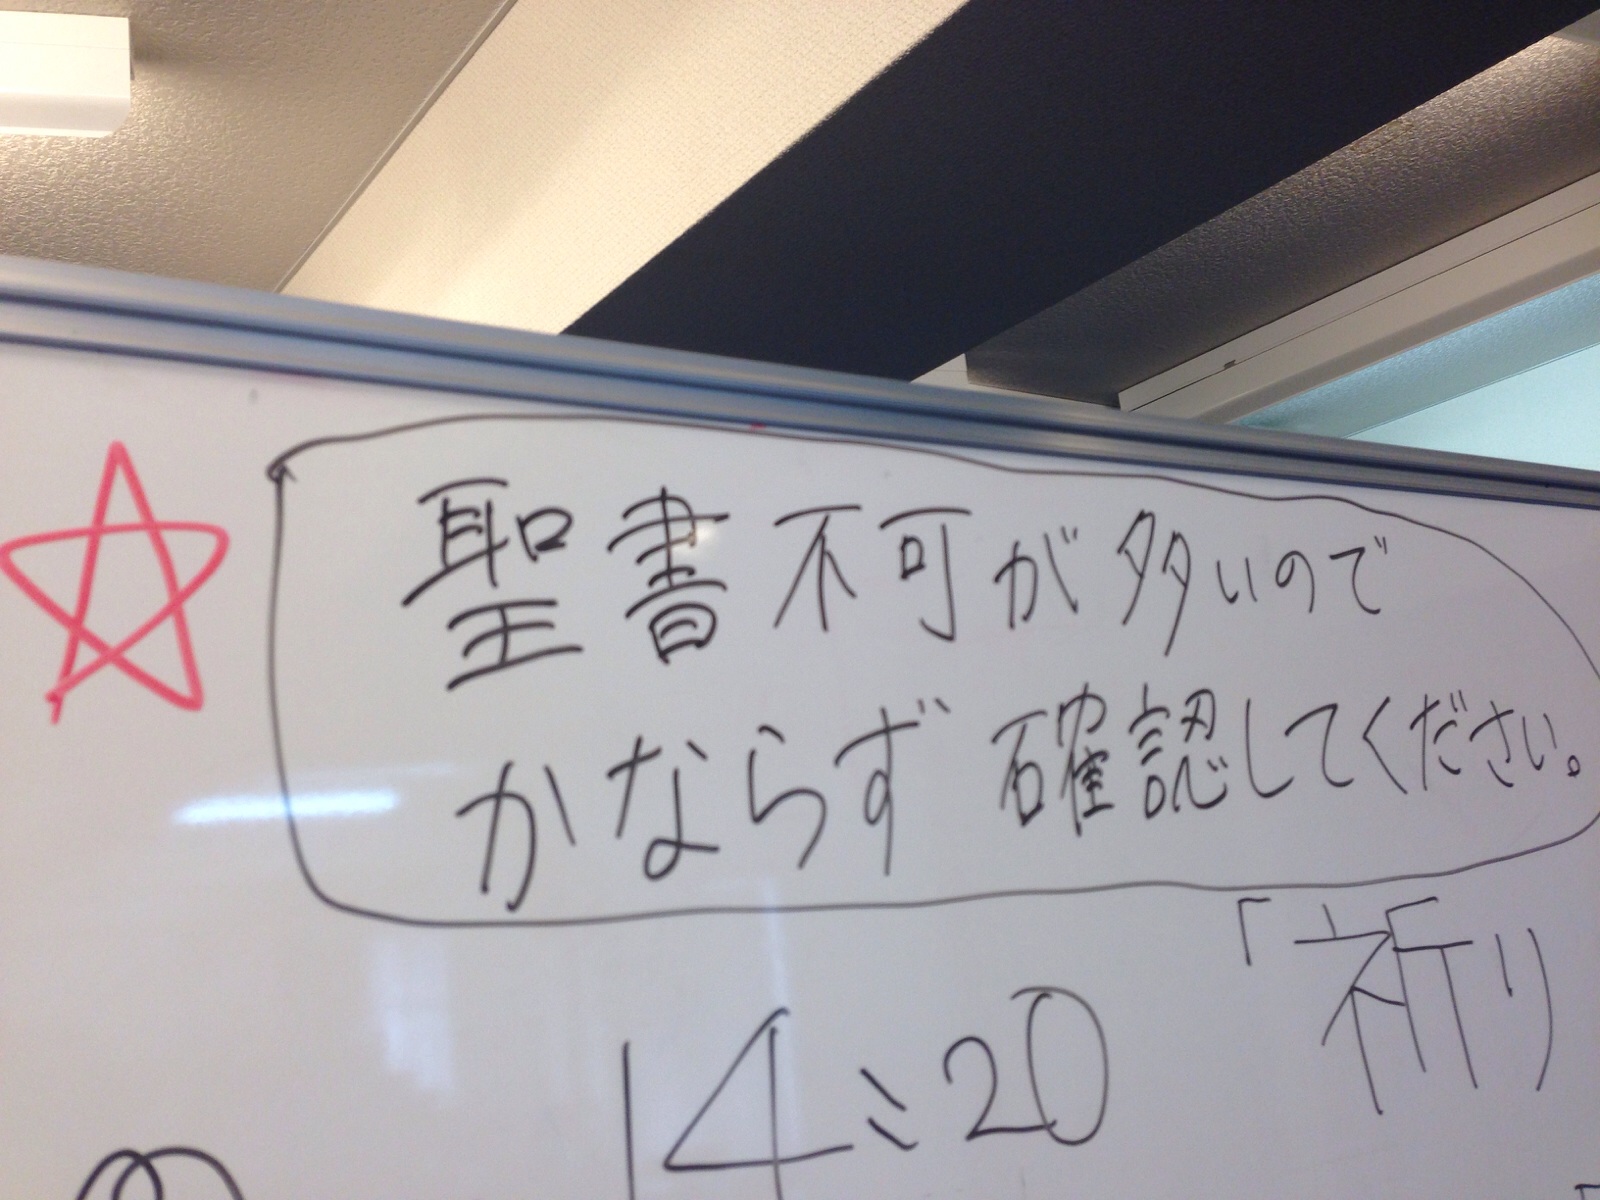 聖書不可が多いので
かならず確認してください。
「祈り
14:20